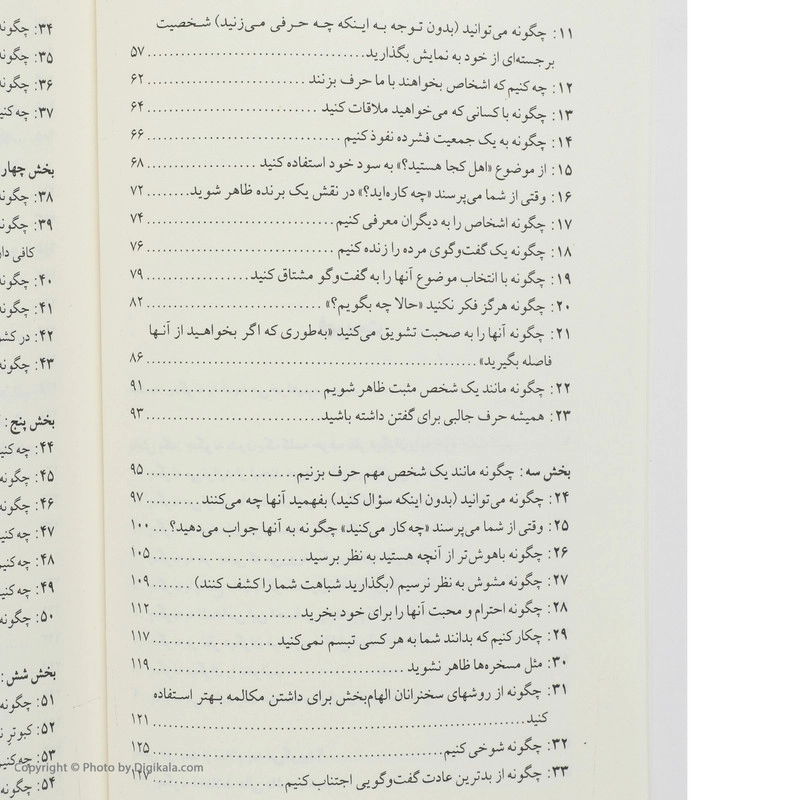 ۱۱: چگونه می‌توانید (بدون توجه به اینکه چه حرفی می‌زنید) شخصیت
برجسته‌ای از خود به نمایش بگذارید ۵۷
۱۲: چه کنیم که اشخاص بخواهند با ما حرف بزنند ۶۲
۱۳: چگونه با کسانی که می‌خواهید ملاقات کنید ۶۴
۱۴: چگونه به یک جمعیت فشرده نفوذ کنیم ۶۶
۱۵: از موضوع «اهل کجا هستید؟» به سود خود استفاده کنید ۶۸
۱۶: وقتی از شما می‌پرسند «چه کاره‌اید؟» در نقش یک برنده ظاهر شوید ۷۲
۱۷: چگونه اشخاص را به دیگران معرفی کنیم ۷۴
۱۸: چگونه یک گفت‌وگوی مرده را زنده کنیم ۷۶
۱۹: چگونه با انتخاب موضوع آنها را به گفت‌وگو مشتاق کنید ۷۹
۲۰: چگونه هرگز فکر نکنید «حالا چه بگویم؟» ۸۲
۲۱: چگونه آنها را به صحبت تشویق می‌کنید «به‌طوری که اگر بخواهید از آنها
فاصله بگیرید» ۸۶
۲۲: چگونه مانند یک شخص مثبت ظاهر شویم ۹۱
۲۳: همیشه حرف جالبی برای گفتن داشته باشید ۹۳
بخش سه: چگونه مانند یک شخص مهم حرف بزنیم ۹۵
۲۴: چگونه می‌توانید (بدون اینکه سؤال کنید) بفهمید آنها چه می‌کنند ۹۷
۲۵: وقتی از شما می‌پرسند «چه کار می‌کنید» چگونه به آنها جواب می‌دهید؟ ۱۰۰
۲۶: چگونه باهوش‌تر از آنچه هستید به نظر برسید ۱۰۵
۲۷: چگونه مشوش به نظر نرسیم (بگذارید شباهت شما را کشف کنند) ۱۰۹
۲۸: چگونه احترام و محبت آنها را برای خود بخرید ۱۱۲
۲۹: چکار کنیم که بدانند شما به هر کسی تبسم نمی‌کنید ۱۱۷
۳۰: مثل مسخره‌ها ظاهر نشوید ۱۱۹
۳۱: چگونه از روشهای سخنرانان الهام‌بخش برای داشتن مکالمه بهتر استفاده
کنید ۱۲۱
۳۲: چگونه شوخی کنیم ۱۲۵
۳۳: چگونه از بدترین عادت گفت‌وگویی اجتناب کنیم ۱۲۷
۳۴: چگونه
۳۵: چگونه
۳۶: چگونه
۳۷: چه کنیم
بخش چهار
۳۸: چگونه
۳۹: چگونه
کافی
۴۰: چگونه
۴۱: چگونه
۴۲: در
۴۳: چگونه
بخش پنج:
۴۴: چه کنیم
۴۵: چگونه
۴۶: چگونه
۴۷: چه کنیم
۴۸: چه کنیم
۴۹: چه کنیم
۵۰: چگونه
بخش شش:
۵۱: چگونه
۵۲: کبوتر
۵۳: چه کنیم
۵۴: چگونه
Copyright © Photo by Digikala.com